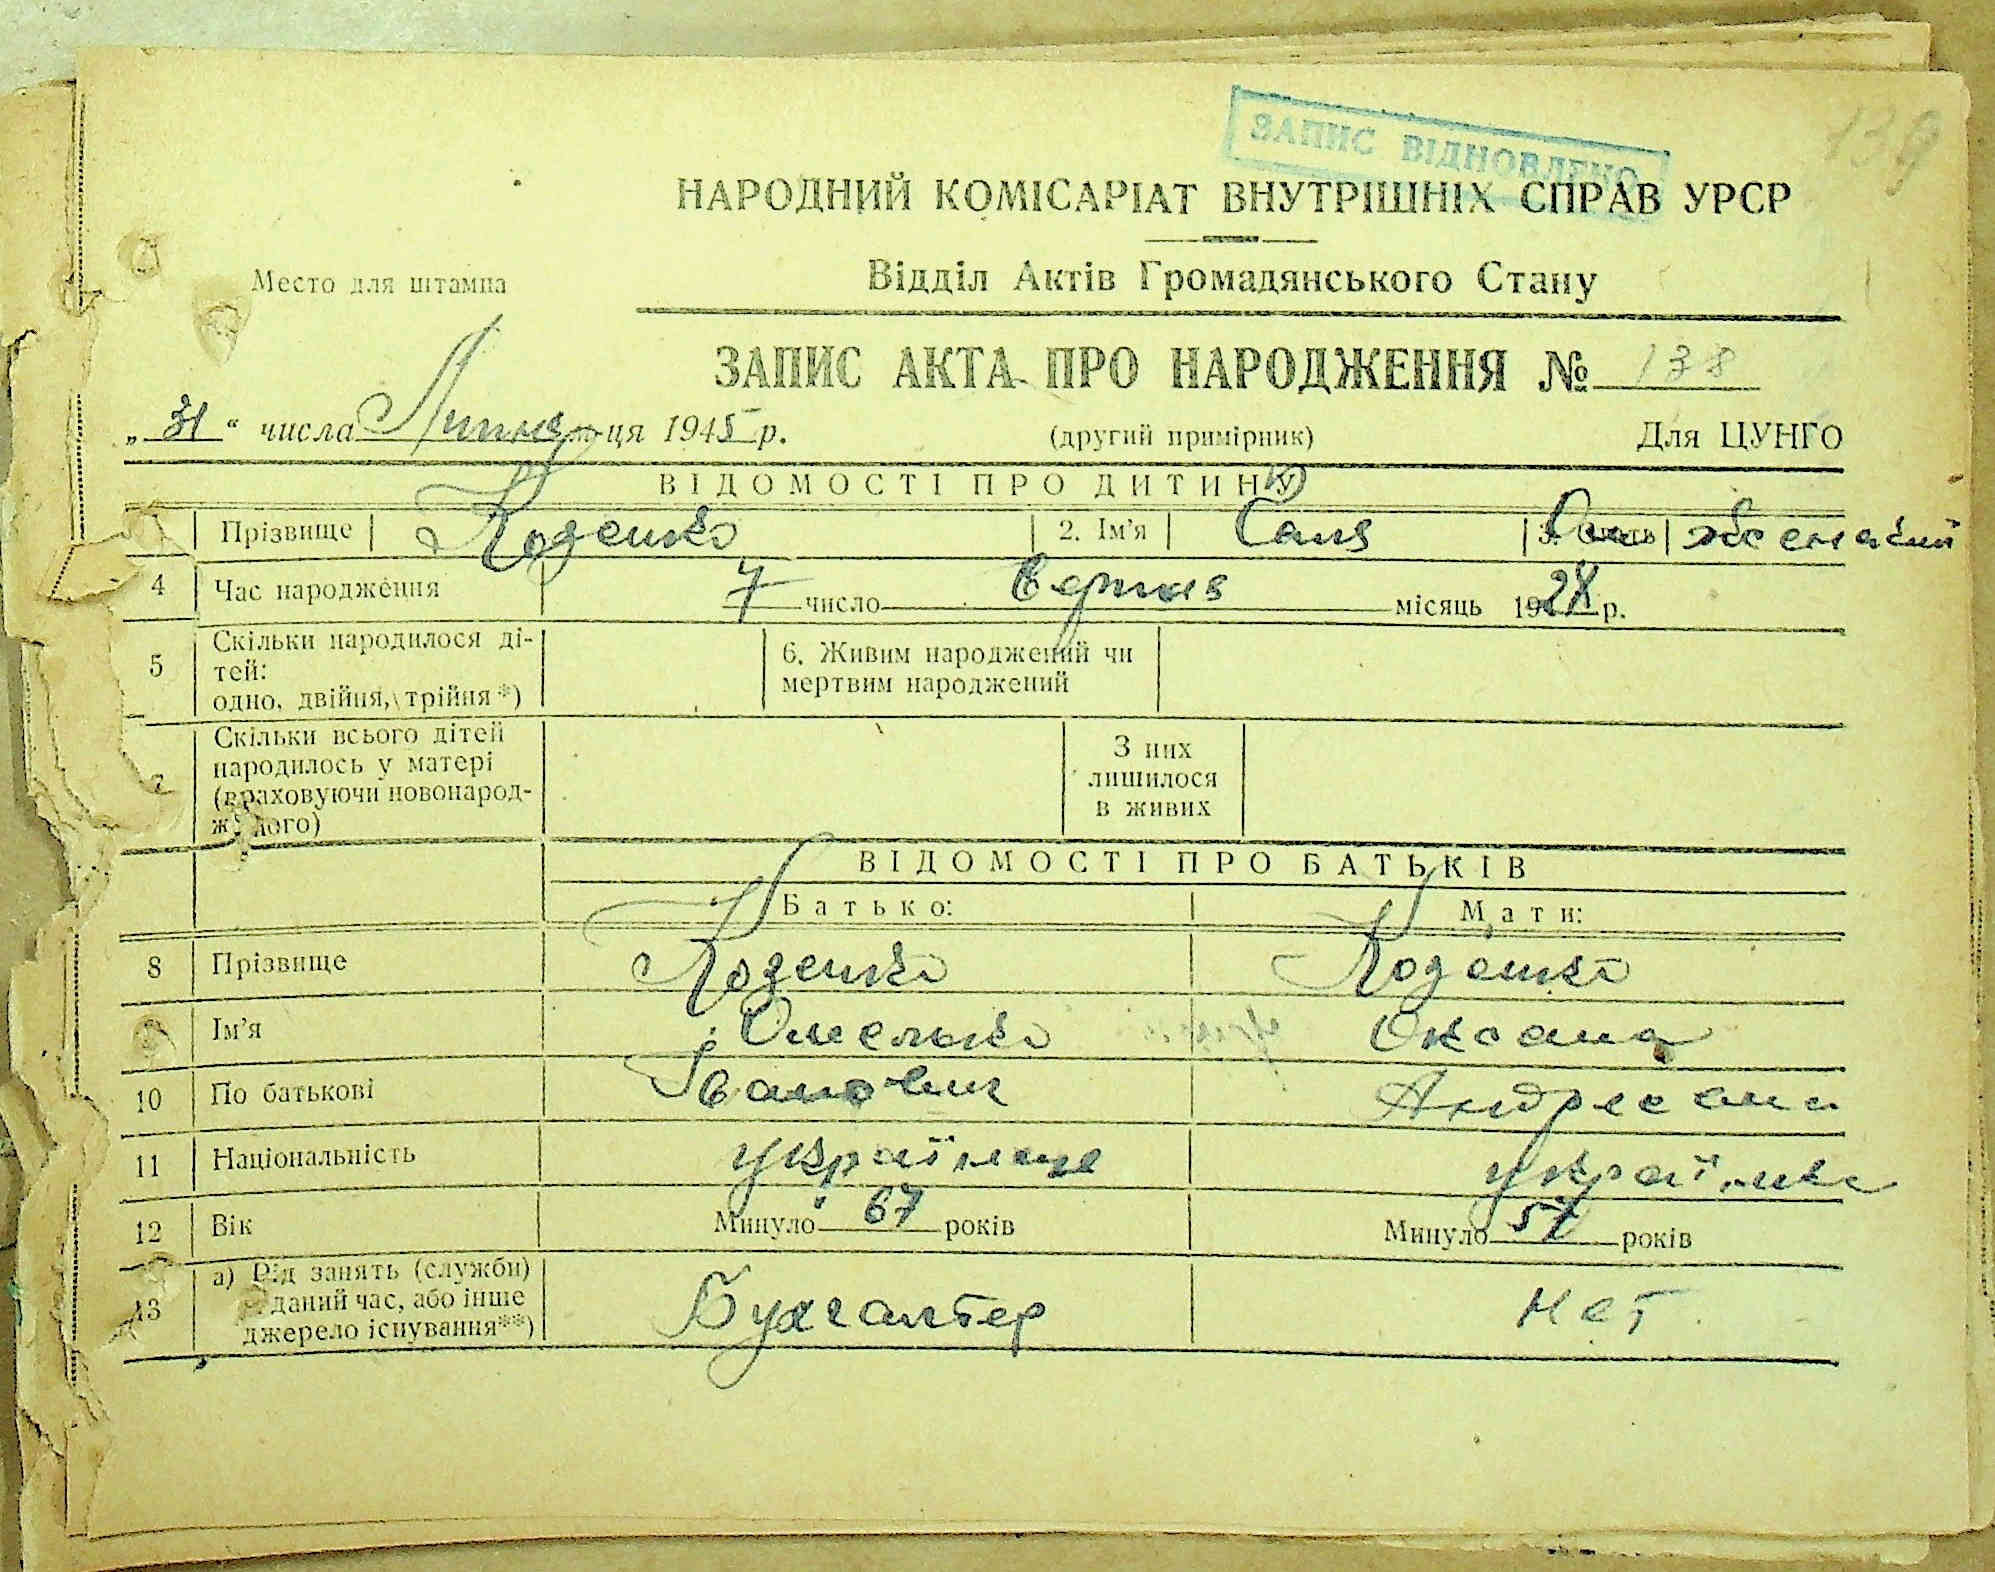 ЗАПИС ВІДНОВЛЕНО
139
НАРОДНИЙ КОМІСАРІАТ ВНУТРІШНІХ СПРАВ УРСР
Место для штампа
Відділ Актів Громадянського Стану
ЗАПИС АКТА ПРО НАРОДЖЕННЯ № 138
„31“ числа Липня м-ця 1945 р. (другий примірник) Для ЦУНГО
ВІДОМОСТІ ПРО ДИТИНУ
Прізвище Коденко 2. Ім'я Галя 3. Стать женский
4 Час народження 7 число Серпня місяць 1928 р.
5 Скільки народилося ді-
тей:
одно, двійня, трійня *)
6. Живим народжений чи
мертвим народжений
7 Скільки всього дітей
народилось у матері
(враховуючи новонарод-
женого)
З них
лишилося
в живих
ВІДОМОСТІ ПРО БАТЬКІВ
Батько: Мати:
8 Прізвище Коденко Коденко
Ім'я Омелько Оксана
10 По батькові Іванович
11 Національність українец українка
12 Вік Минуло 67 років Минуло 57 років
13 а) Рід занять (служби)
в даний час, або інше
джерело існування**)
Бухгалтер Нет